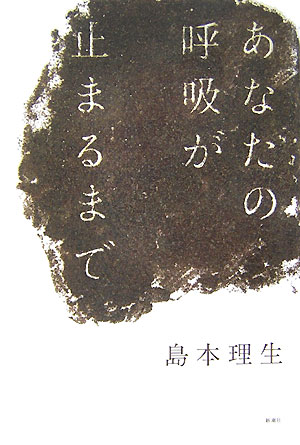 あなたの
呼吸が
止まるまで
島本理生
新潮社